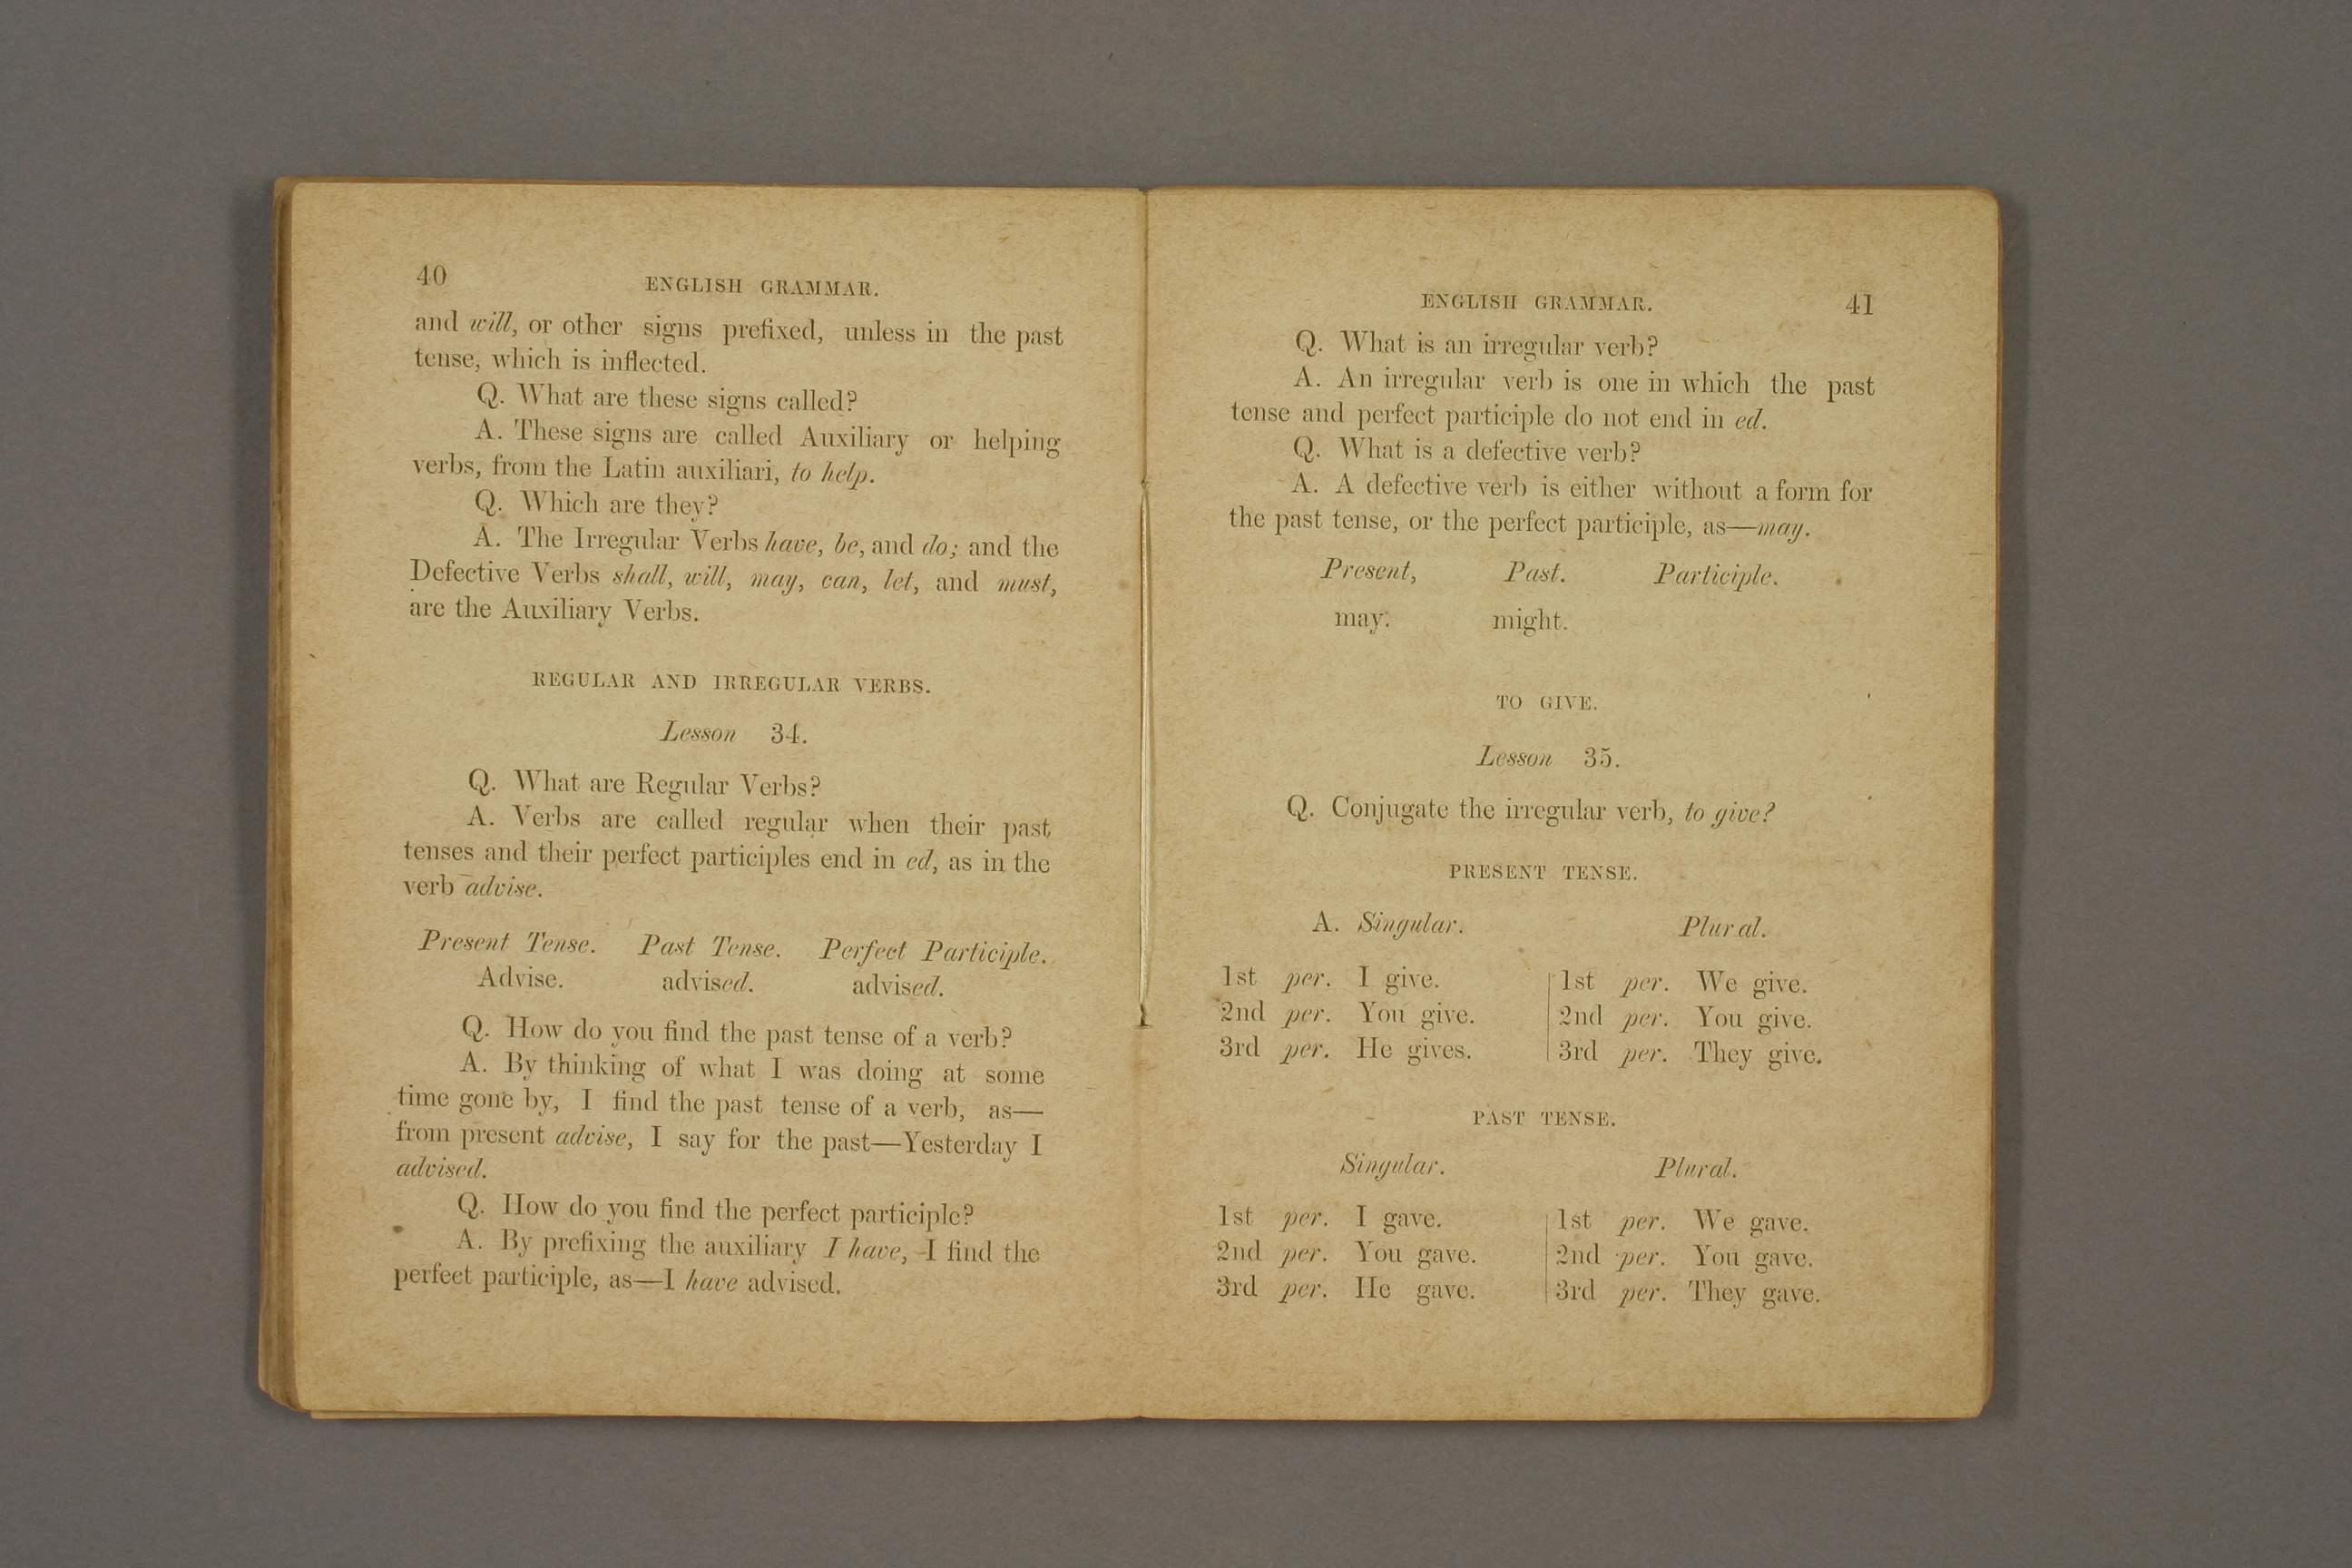 40
ENGLISH GRAMMAR.
and will, or other signs prefixed, unless in the past
tense, which is inflected.
Q. What are these signs called?
A. These signs are called Auxiliary or helping
verbs, from the Latin auxiliari, to help.
Q. Which are they?
A. The Irregular Verbs have, be, and do; and the
Defective Verbs shall, will, may, can, let, and must,
are the Auxiliary Verbs.
REGULAR AND IRREGULAR VERBS.
Lesson 34.
Q. What are Regular Verbs?
A. Verbs are called regular when their past
tenses and their perfect participles end in ed, as in the
verb advise.
Present Tense. Past Tense. Perfect Participle.
Advise. advised. advised.
Q. How do you find the past tense of a verb?
A. By thinking of what I was doing at some
time gone by, I find the past tense of a verb, as—
from present advise, I say for the past—Yesterday I
advised.
Q. How do you find the perfect participle?
A. By prefixing the auxiliary I have, I find the
perfect participle, as—I have advised.
ENGLISH GRAMMAR. 41
Q. What is an irregular verb?
A. An irregular verb is one in which the past
tense and perfect participle do not end in ed.
Q. What is a defective verb?
A. A defective verb is either without a form for
the past tense, or the perfect participle, as—may.
Present, Past. Participle.
may. might.
TO GIVE.
Lesson 35.
Q. Conjugate the irregular verb, to give?
PRESENT TENSE.
A. Singular. Plural.
1st per. I give. 1st per. We give.
2nd per. You give. 2nd per. You give.
3rd per. He gives. 3rd per. They give.
PAST TENSE.
Singular. Plural.
1st per. I gave. 1st per. We gave.
2nd per. You gave. 2nd per. You gave.
3rd per. He gave. 3rd per. They gave.